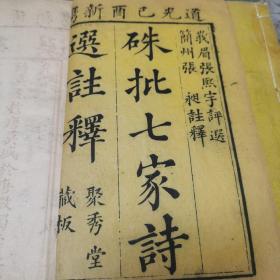 道光己酉新鐫
峩眉張熙宇評選
簡州張昶註釋
硃批七家詩
選註釋
聚秀堂
藏板